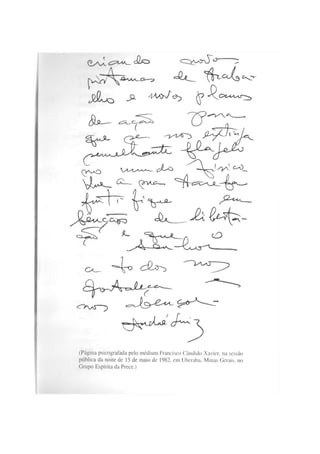 criando novos
sistemas de traba-
lho e novos planos
de ação para
que se nos extinga
semelhante flagelo
no mundo físico
Que a sua tarefa
frutifique em
bênçãos de liberta-
ção e que o
Senhor
a todos nos
fortaleça
nos abençoe
André Luiz
(Página psicografada pelo médium Francisco Cândido Xavier, na sessão
pública da noite de 15 de maio de 1982, em Uberaba, Minas Gerais, no
Grupo Espírita da Prece.)